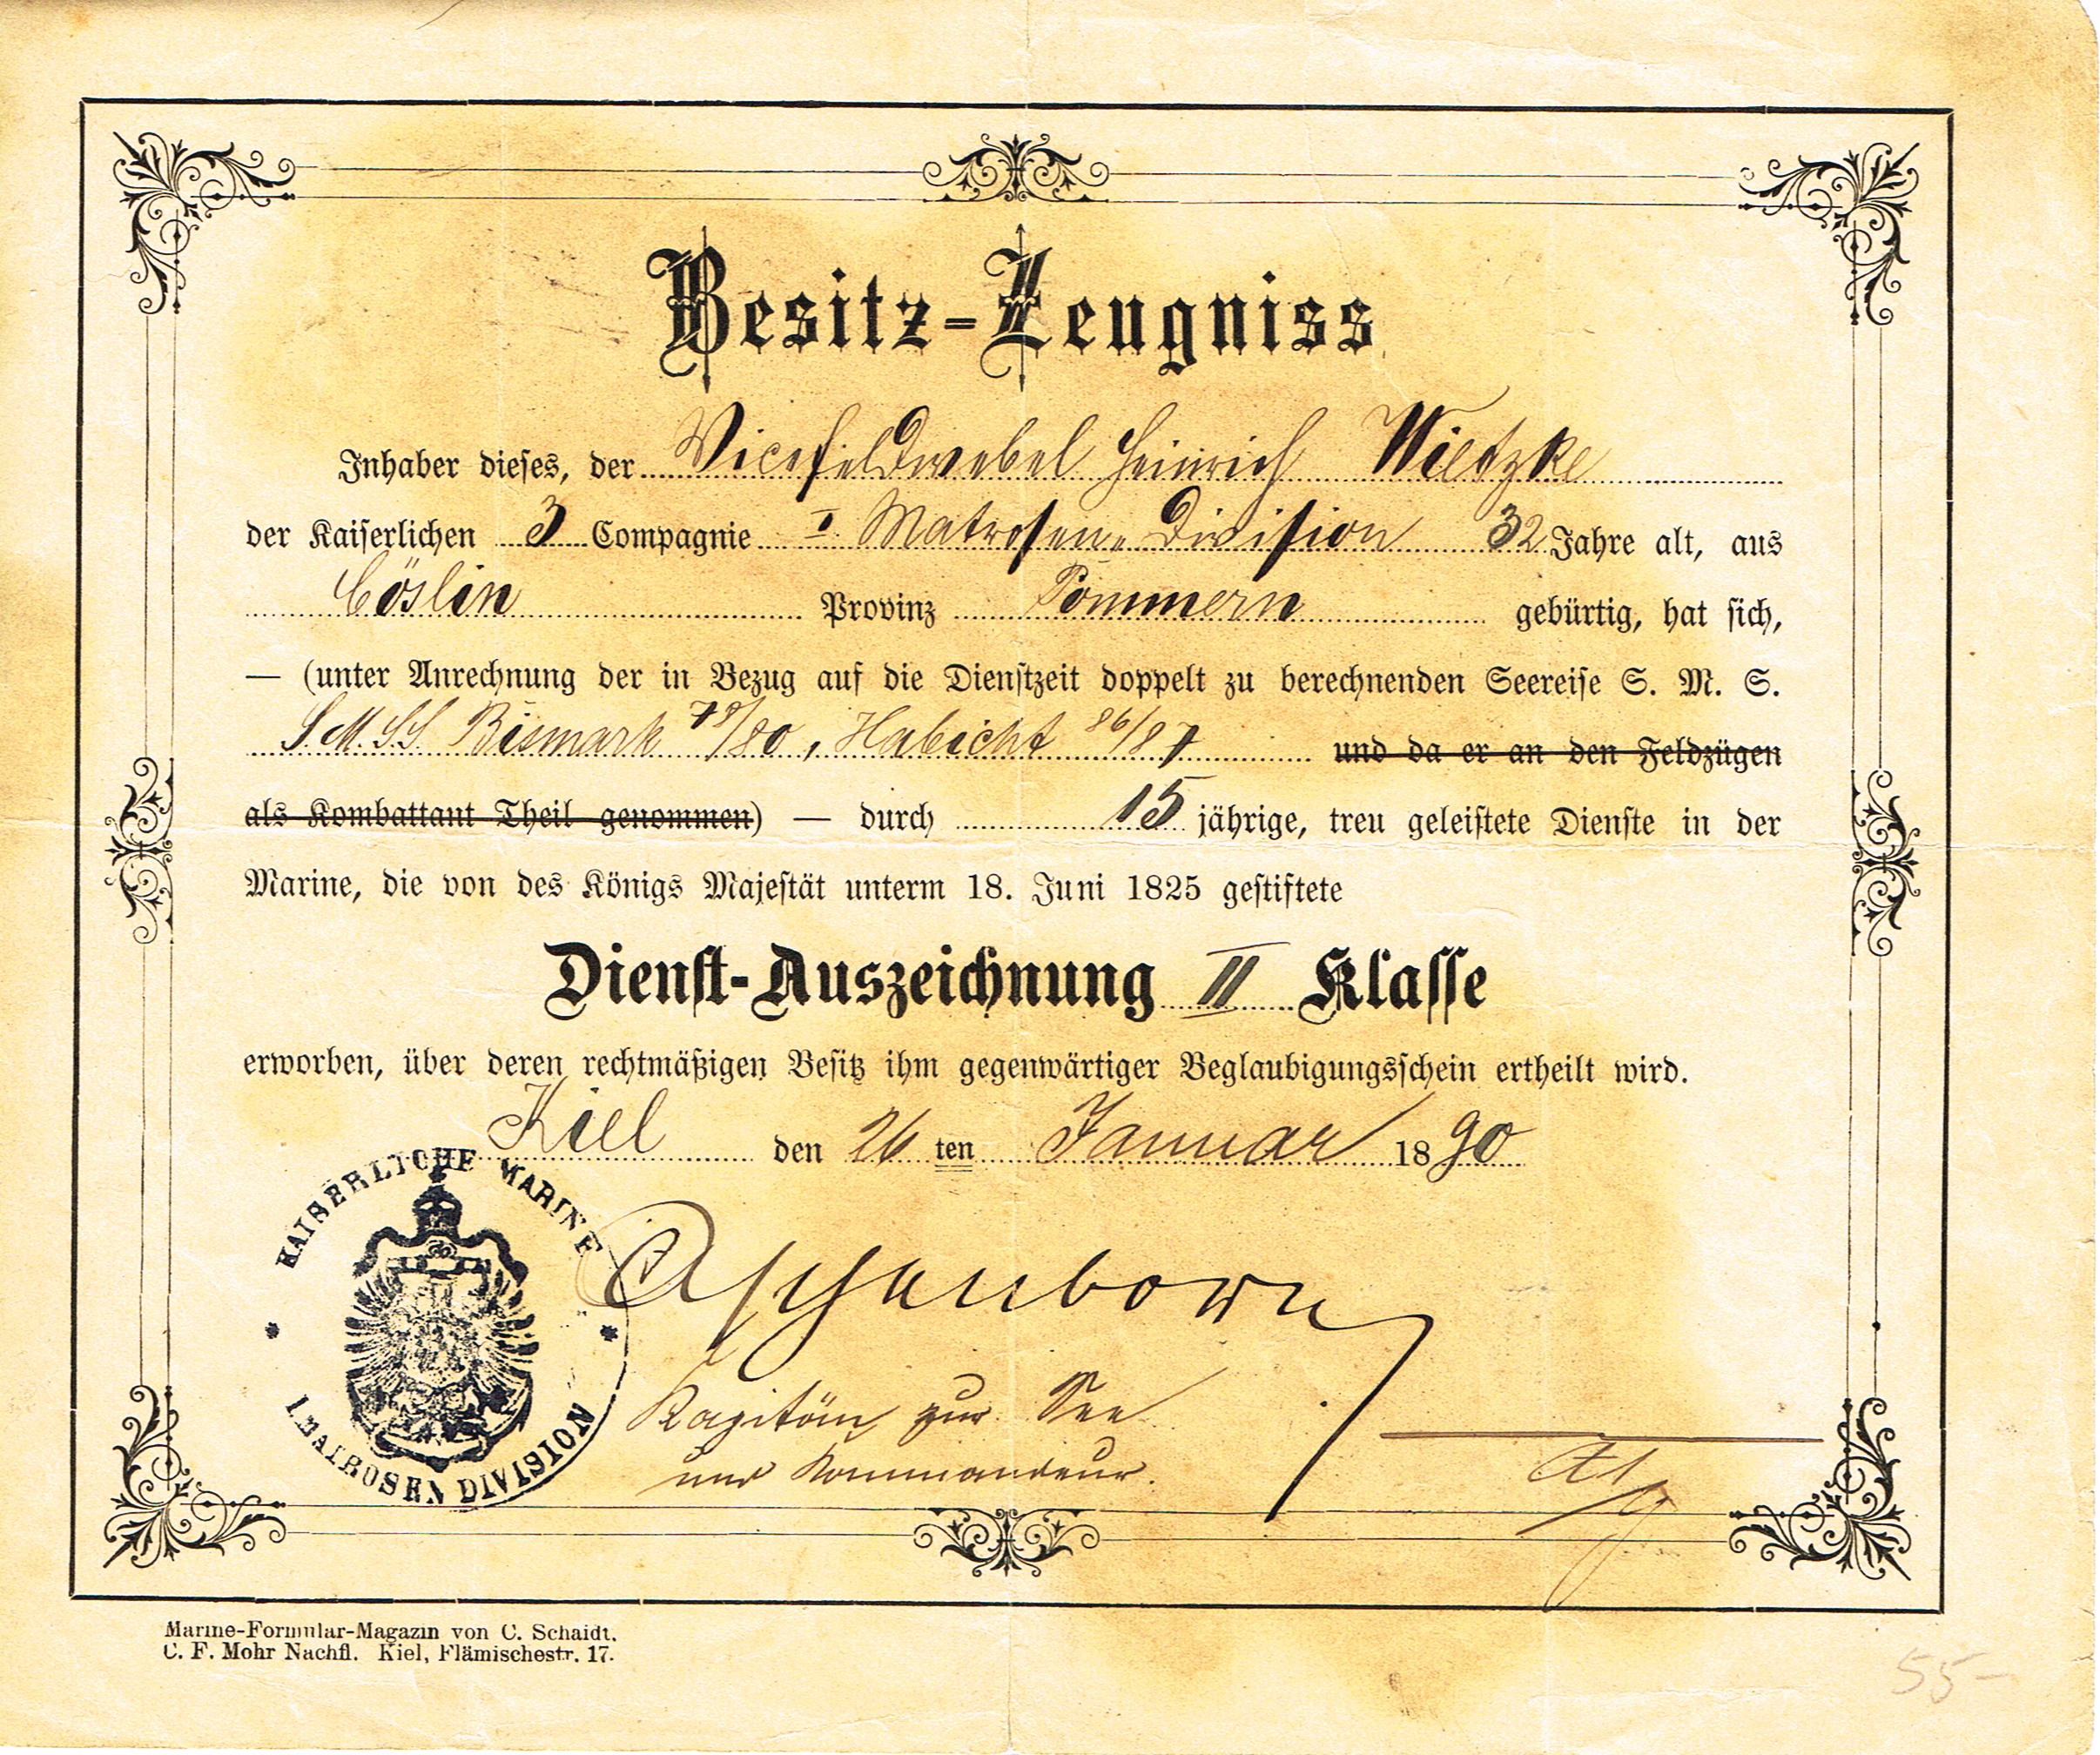 Besitz-Zeugniss
Inhaber dieses, der Vicefeldwebel Heinrich Wietzke
der Kaiserlichen 3 Compagnie I. Matrosen-Division 32 Jahre alt, aus
Cöslin Provinz Pommern gebürtig, hat sich,
— (unter Anrechnung der in Bezug auf die Dienstzeit doppelt zu berechnenden Seereise S. M. S.
S.M.SS Bismark 78/80, Habicht 86/87 und da er an den Feldzügen
als Kombattant Theil genommen) — durch 15 jährige, treu geleistete Dienste in der
Marine, die von des Königs Majestät unterm 18. Juni 1825 gestiftete
Dienst-Auszeichnung II Klasse
erworben, über deren rechtmäßigen Besitz ihm gegenwärtiger Beglaubigungsschein ertheilt wird.
Kiel den 26 ten Januar 1890
KAISERLICHE MARINE
I MATROSEN DIVISION
Aschenborn
Kapitän zur See
und Kommandeur.
Marine-Formular-Magazin von C. Schaidt.
C. F. Mohr Nachfl. Kiel, Flämischestr. 17.
55-